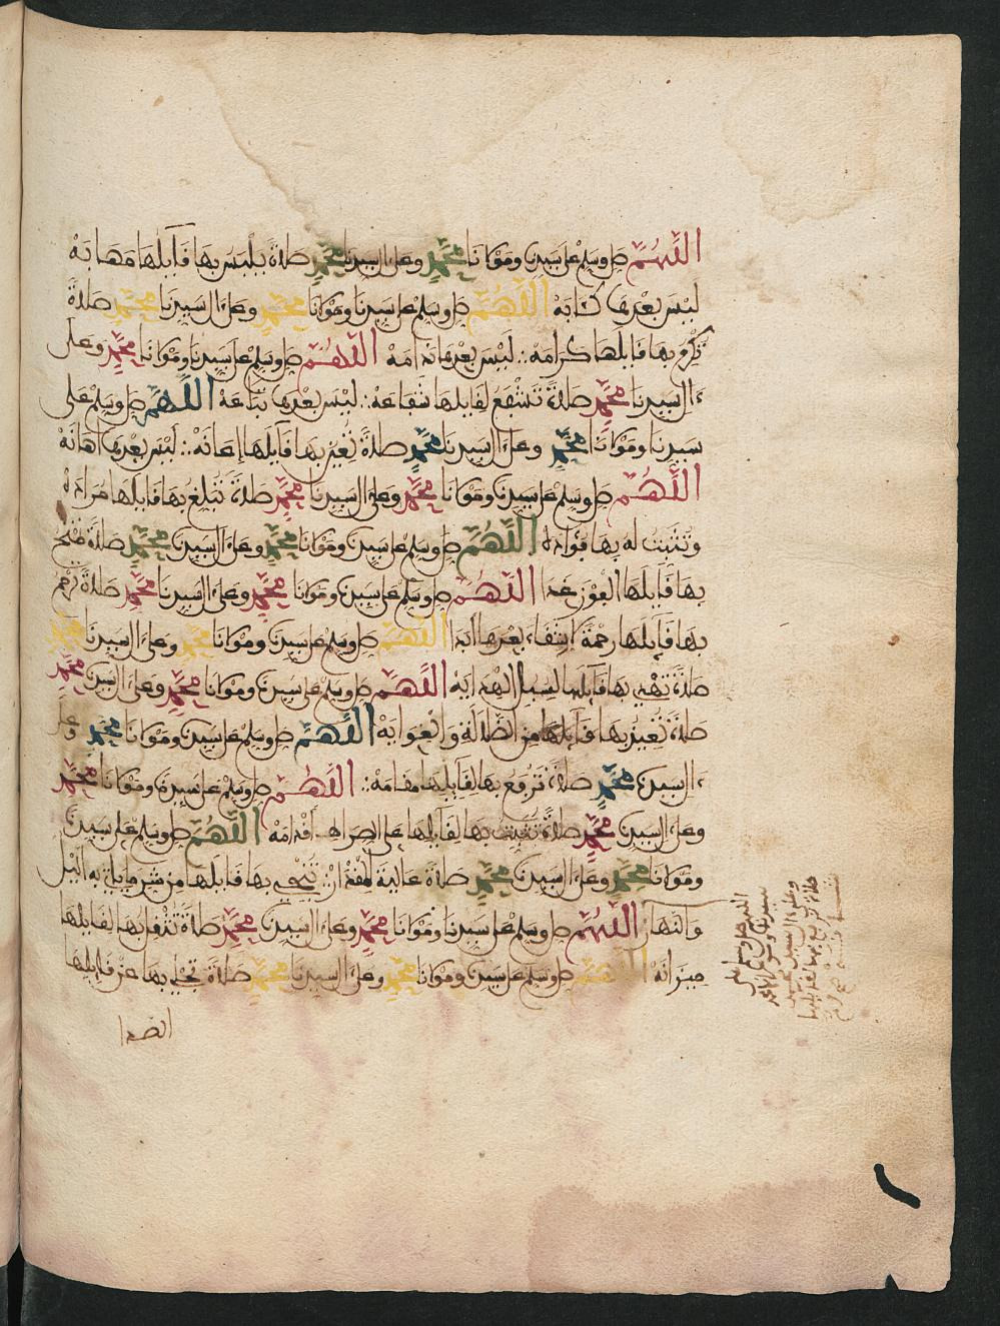 اللهم صل وسلم على سيدنا ومولانا محمد وعلى ال سيدنا محمد صلاة يلبس بها قايلها مهابه
ليس بعدها كئابه اللهم صل وسلم على سيدنا ومولانا محمد وعلى ءال سيدنا محمد صلاة
تكرم بها قايلها كرامه ليس بعدها ندامه اللهم صل وسلم على سيدنا ومولانا محمد وعلى
ءال سيدنا محمد صلاة تشفع لقايلها شفاعه ليس بعدها اللهم صل وسلم على
سيدنا ومولانا محمد وعلى ءال سيدنا محمد صلاة تعين بها قايلها إعانه ليس بعدها اهانه
اللهم صل وسلم على سيدنا ومولانا محمد وعلى ال سيدنا محمد صلاة تبلغ بها قايلها مراده
وتثبت له بها فؤاده اللهم صل وسلم على سيدنا ومولانا محمد وعلى ءال سيدنا محمد صلاة تمنح
بها قايلها الفوز غدا اللهم صل وسلم على سيدنا ومولانا محمد وعلى ءال سيدنا محمد صلاة ترحم
بها قايلها رحمة بعدها ابدا اللهم صل وسلم على سيدنا ومولانا محمد وعلى ءال سيدنا محمد
صلاة تهدي بها قايلها لسبيل الهدايه اللهم صل وسلم على سيدنا ومولانا محمد وعلى ءال سيدنا محمد
صلاة تعيذ بها قايلها من الضلالة والغوايه اللهم صل وسلم على سيدنا ومولانا محمد وعلى
ءال سيدنا محمد صلاة ترفع بها لقايلها مقامه اللهم صل وسلم على سيدنا ومولانا محمد
وعلى ءال سيدنا محمد صلاة تثبت بها لقايلها على الصراط أقدامه اللهم صل وسلم على سيدنا
ومولانا محمد وعلى ءال سيدنا محمد صلاة عالية المقدار تنجي بها قايلها من شر ما ياتي به اليل
والنهار اللهم صل وسلم على سيدنا ومولانا محمد وعلى ءال سيدنا محمد صلاة تثقل بها لقايلها
ميزانه اللهم صل وسلم على سيدنا ومولانا محمد وعلى ءال سيدنا محمد صلاة تجلي بها عن قايلها
الصدا